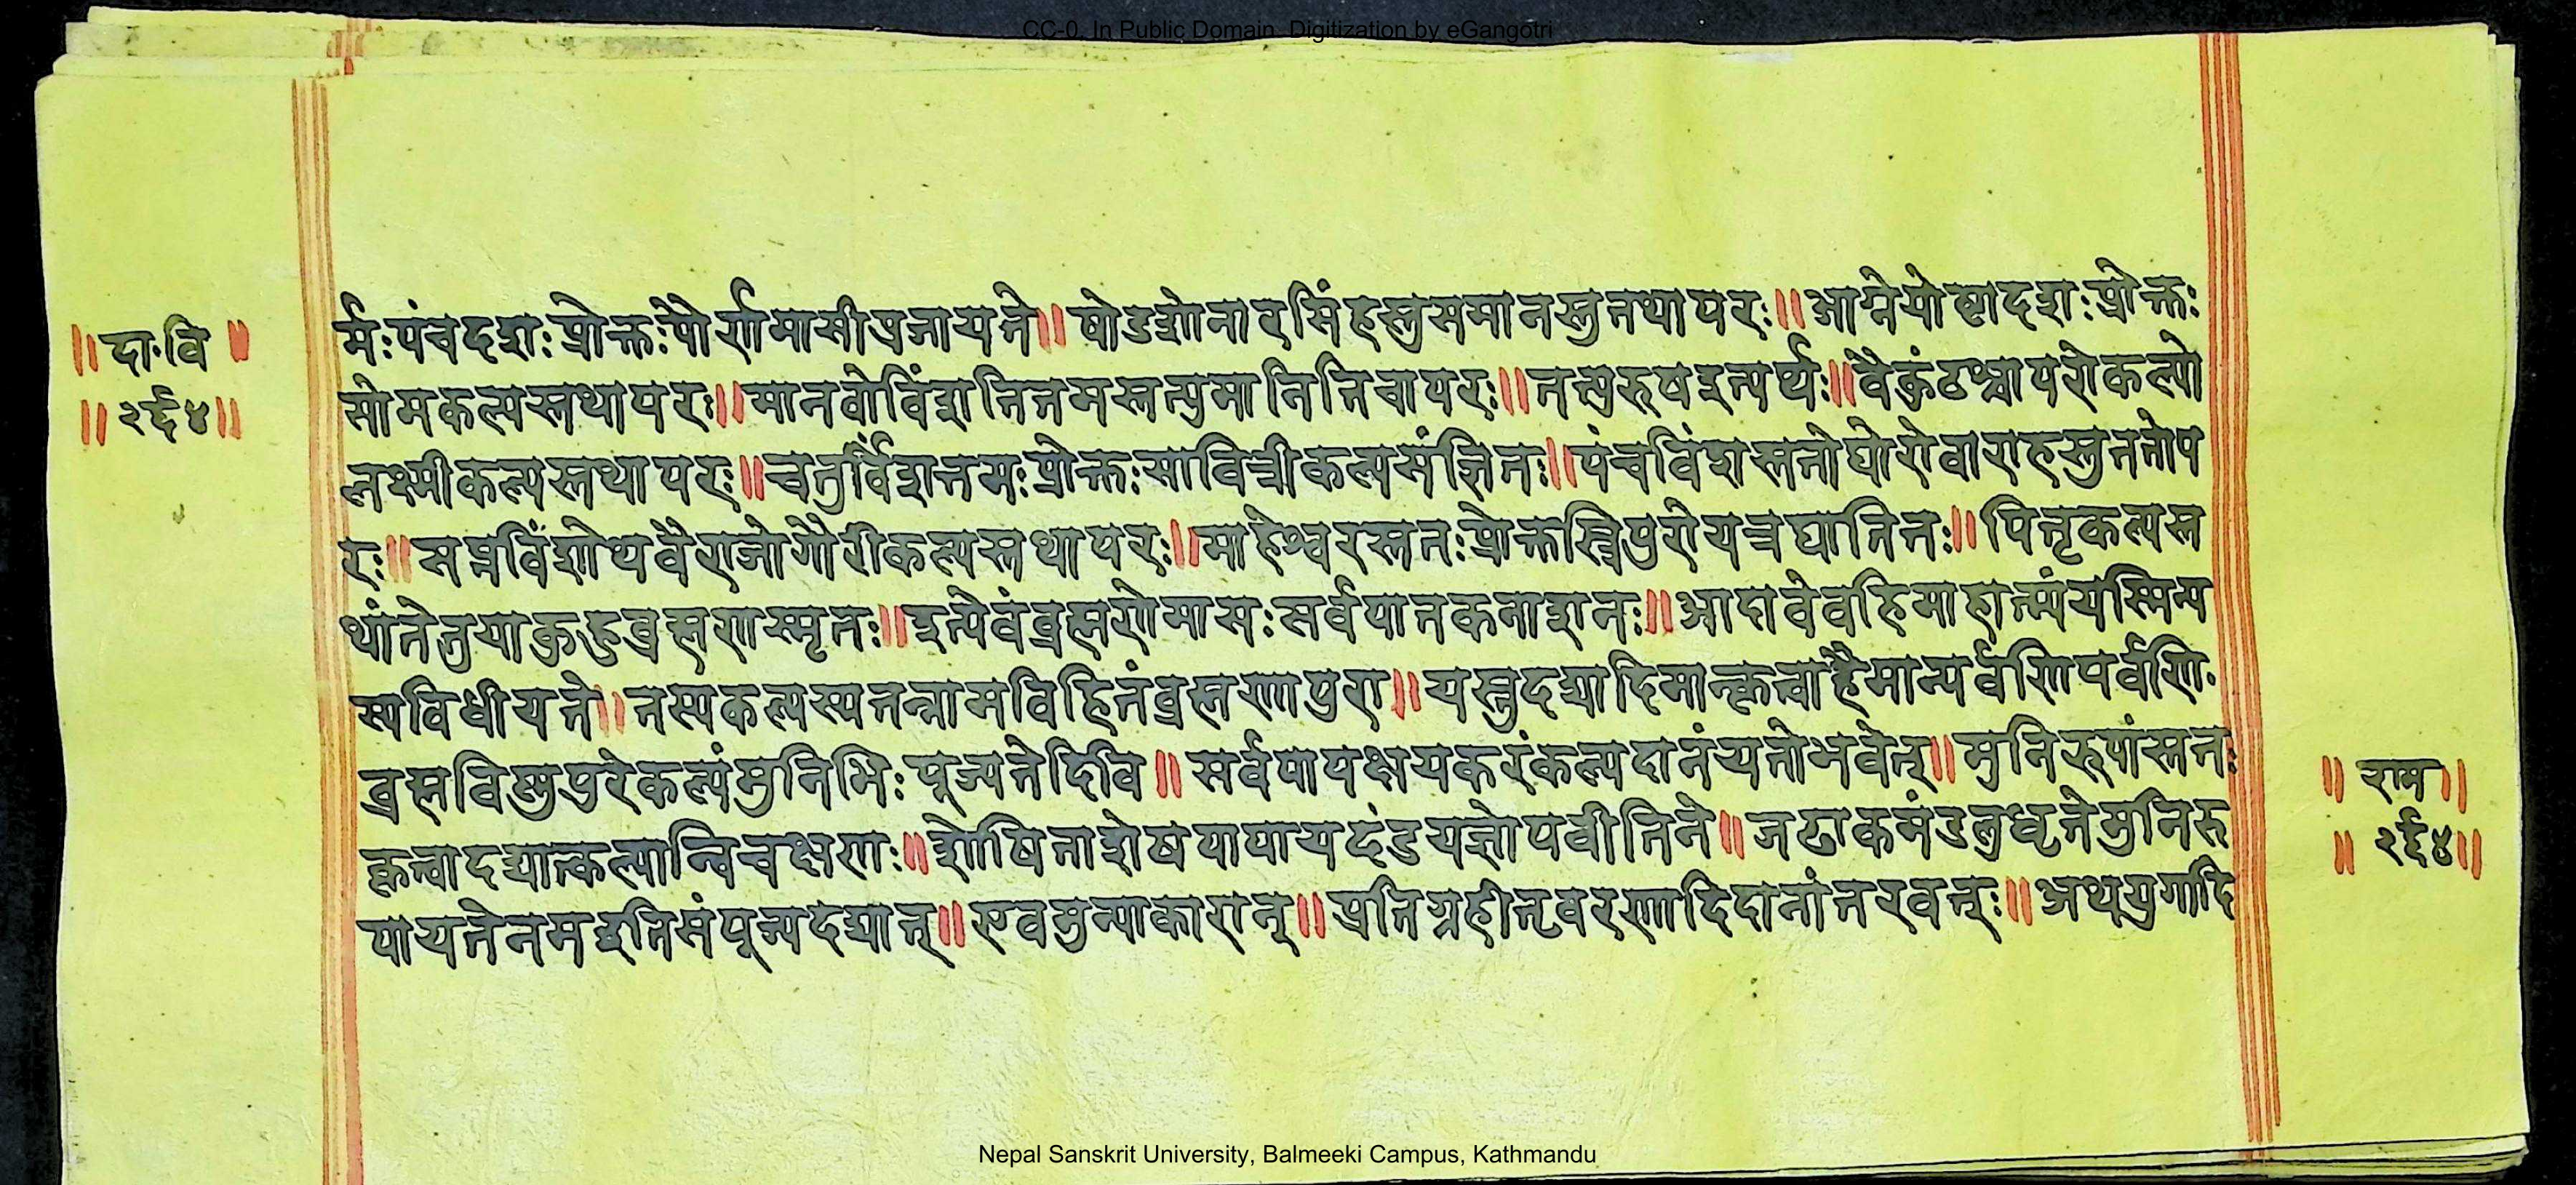 CC-0. In Public Domain. Digitization by eGangotri
॥ दा·वि ॥
॥ २६४॥
र्मः पंचदशः प्रोक्तः पौर्णमासी प्रजायते॥ षोडशो नारसिंहस्तु समानस्तु तथापरः॥ आग्नेयोष्टादशः प्रोक्तः
सोमकल्पस्तथापरः॥ मानवो विंशतितमस्तत्पुमानिति चापरः॥ तत्पुरुष इत्यर्थः॥ वैकुंठश्चापरो कल्पो
लक्ष्मीकल्पस्तथापरः॥ चतुर्विंशत्तमः प्रोक्तः सावित्रीकल्पसंज्ञितः॥ पंचविंशस्ततो घोरो वाराहस्तु ततोप
रः॥ सप्तविंशोथ वैराजो गौरीकल्पस्तथापरः॥ माहेश्वरस्ततः प्रोक्तस्त्रिपुरो यत्र घातितः॥ पितृकल्पस्त
थांते तु या कुहुब्रह्मणा स्मृतः॥ इत्येवं ब्रह्मणो मासः सर्वपातकनाशनः॥ आदावेव हि माहात्म्यं यस्मिन्य
स्य विधीयते॥ तस्य कल्पस्य तन्नाम विहितं ब्रह्मणा पुरा॥ यस्तु दद्यादिमान्कृत्वा हैमान्पर्वणि पर्वणि·
ब्रह्मविष्णुपुरे कल्पं मुनिभिः पूज्यते दिवि॥ सर्वपापक्षयकरं कल्पदानं यतो भवेत्॥ मुनिरूपांस्ततः
कृत्वा दद्यात्कल्पान्विचक्षणः॥ शोषिताशेषपापाय दंडयज्ञोपवीतिने॥ जटाकमंडलुधृते मुनिरु
पाय ते नम इति संपूज्य दद्यात्॥ एवमुन्याकारान्॥ प्रतिग्रहीतृवरणादि दानांतरवत्ः॥ अथ युगादि
॥ राम ॥
॥ २६४॥
Nepal Sanskrit University, Balmeeki Campus, Kathmandu